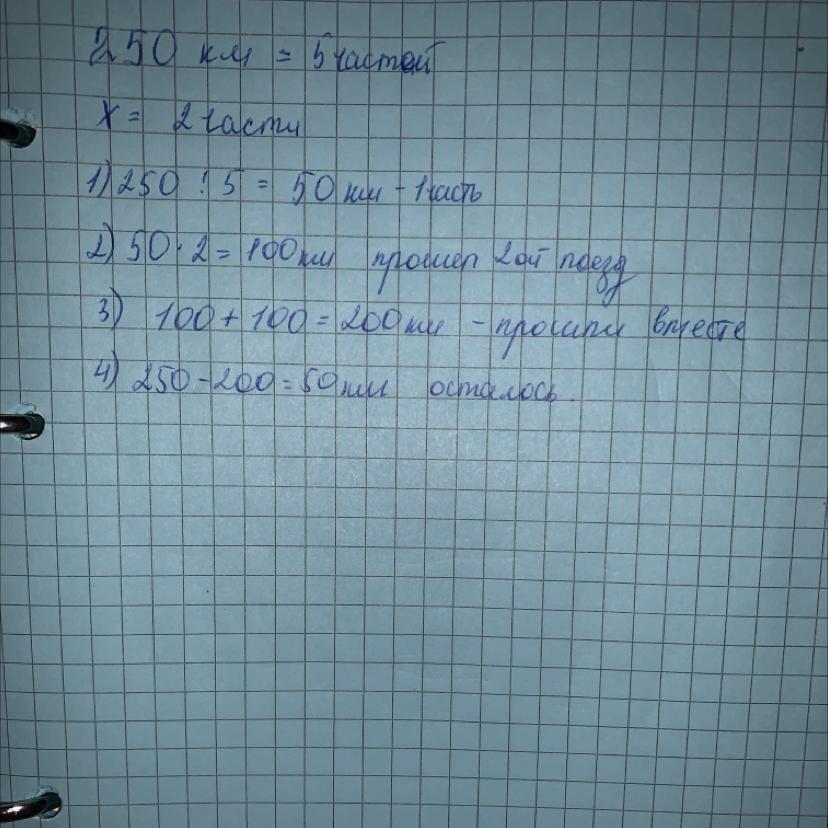 250 км = 5 частей
X = 2 части
1) 250 : 5 = 50 км - 1 часть
2) 50 · 2 = 100 км прошел 2ой поезд
3) 100 + 100 = 200 км - прошли вместе
4) 250 - 200 = 50 км осталось.